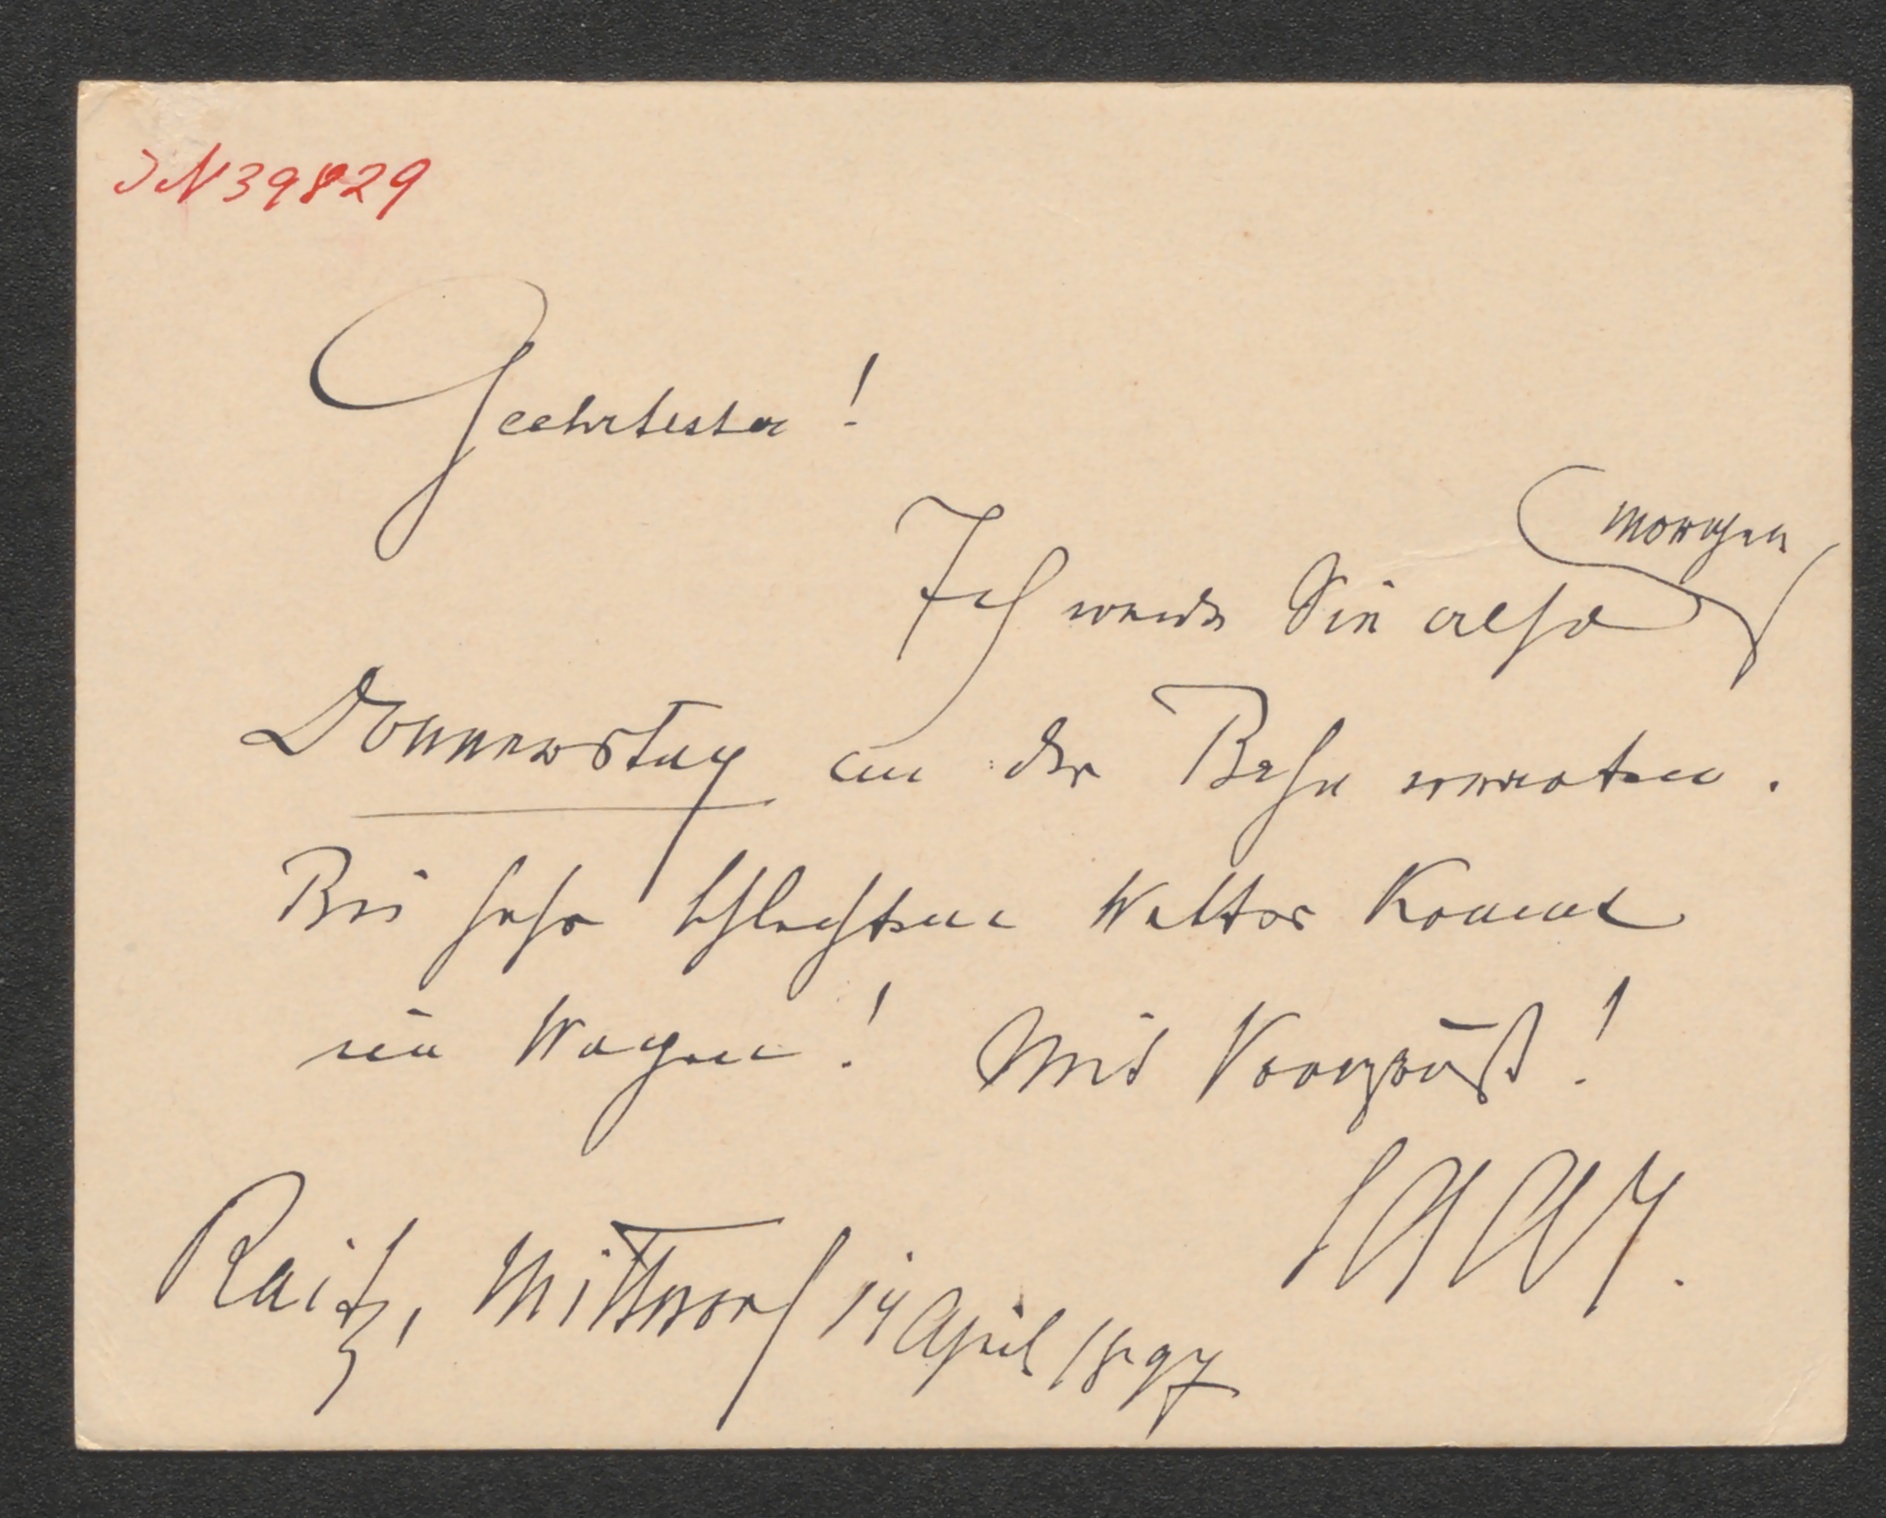 IN 39829
Geehrtester!
morgen
Ich werde Sie also
Donnerstag an der Bahn erwarten.
Bei sehr schlechtem Wetter kommt
ein Wagen! Mit Vorgruß!
SAAR.
Raitz, Mittwoch 14 April 1897